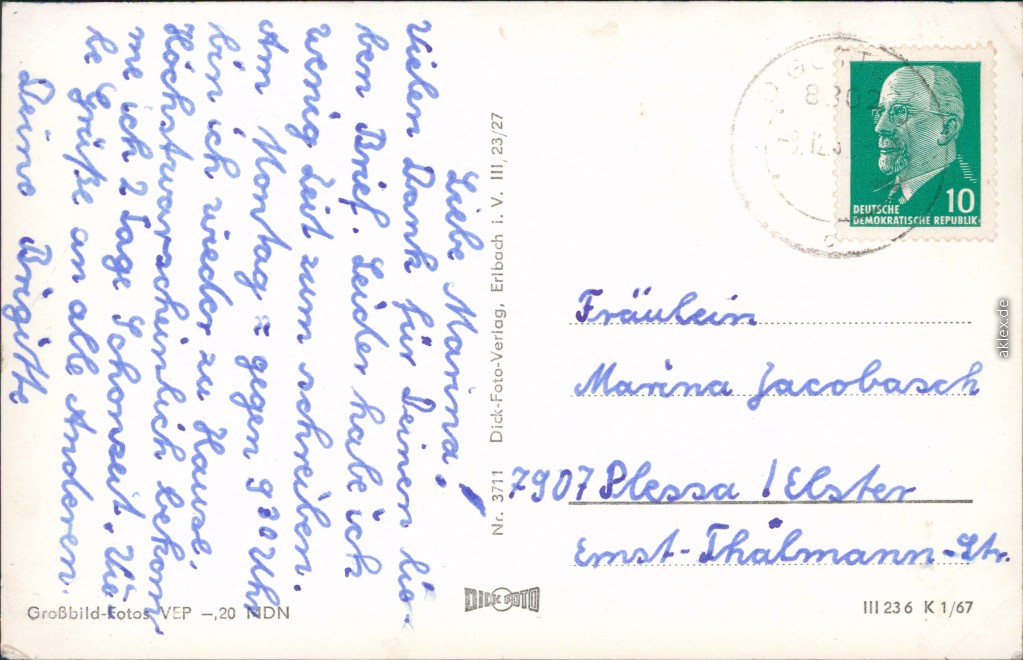 Liebe Marina!
Vielen Dank für Deinen lie-
ben Brief. Leider habe ich
wenig Zeit zum schreiben.
Am Montag gegen 9 30 Uhr
bin ich wieder zu Hause.
Höchstwarscheinlich bekom-
me ich 2 Tage Schonzeit. Vie-
le Grüße an alle Anderen.
Deine Brigitte
Nr. 3711 Dick-Foto-Verlag, Erlbach i. V. III, 23/27
DEUTSCHE
DEMOKRATISCHE REPUBLIK
10
Fräulein
Marina Jacobasch
7907 Plessa / Elster
Ernst-Thälmann-Str.
Großbild-Fotos VEP –,20 MDN
DICK FOTO
III 23 6 K 1/67
aklex.de